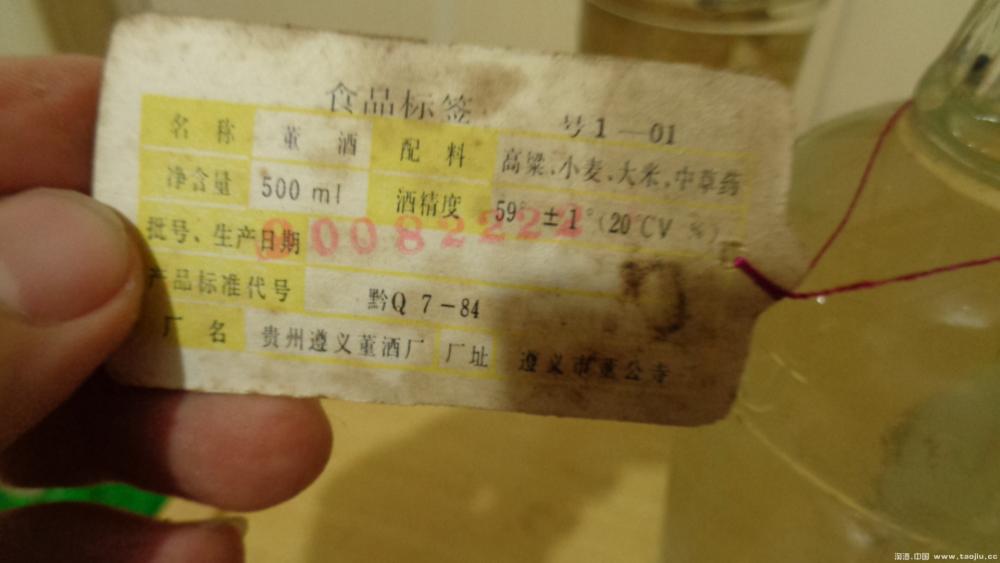 食品标签 号1—01
名称 董酒 配料 高粱、小麦、大米、中草药
净含量 500 ml 酒精度 59°±1°(20℃V %)
批号、生产日期 0082222
产品标准代号 黔Q 7-84
厂名 贵州遵义董酒厂 厂址 遵义市董公寺
淘酒.中国 www.taojiu.cc